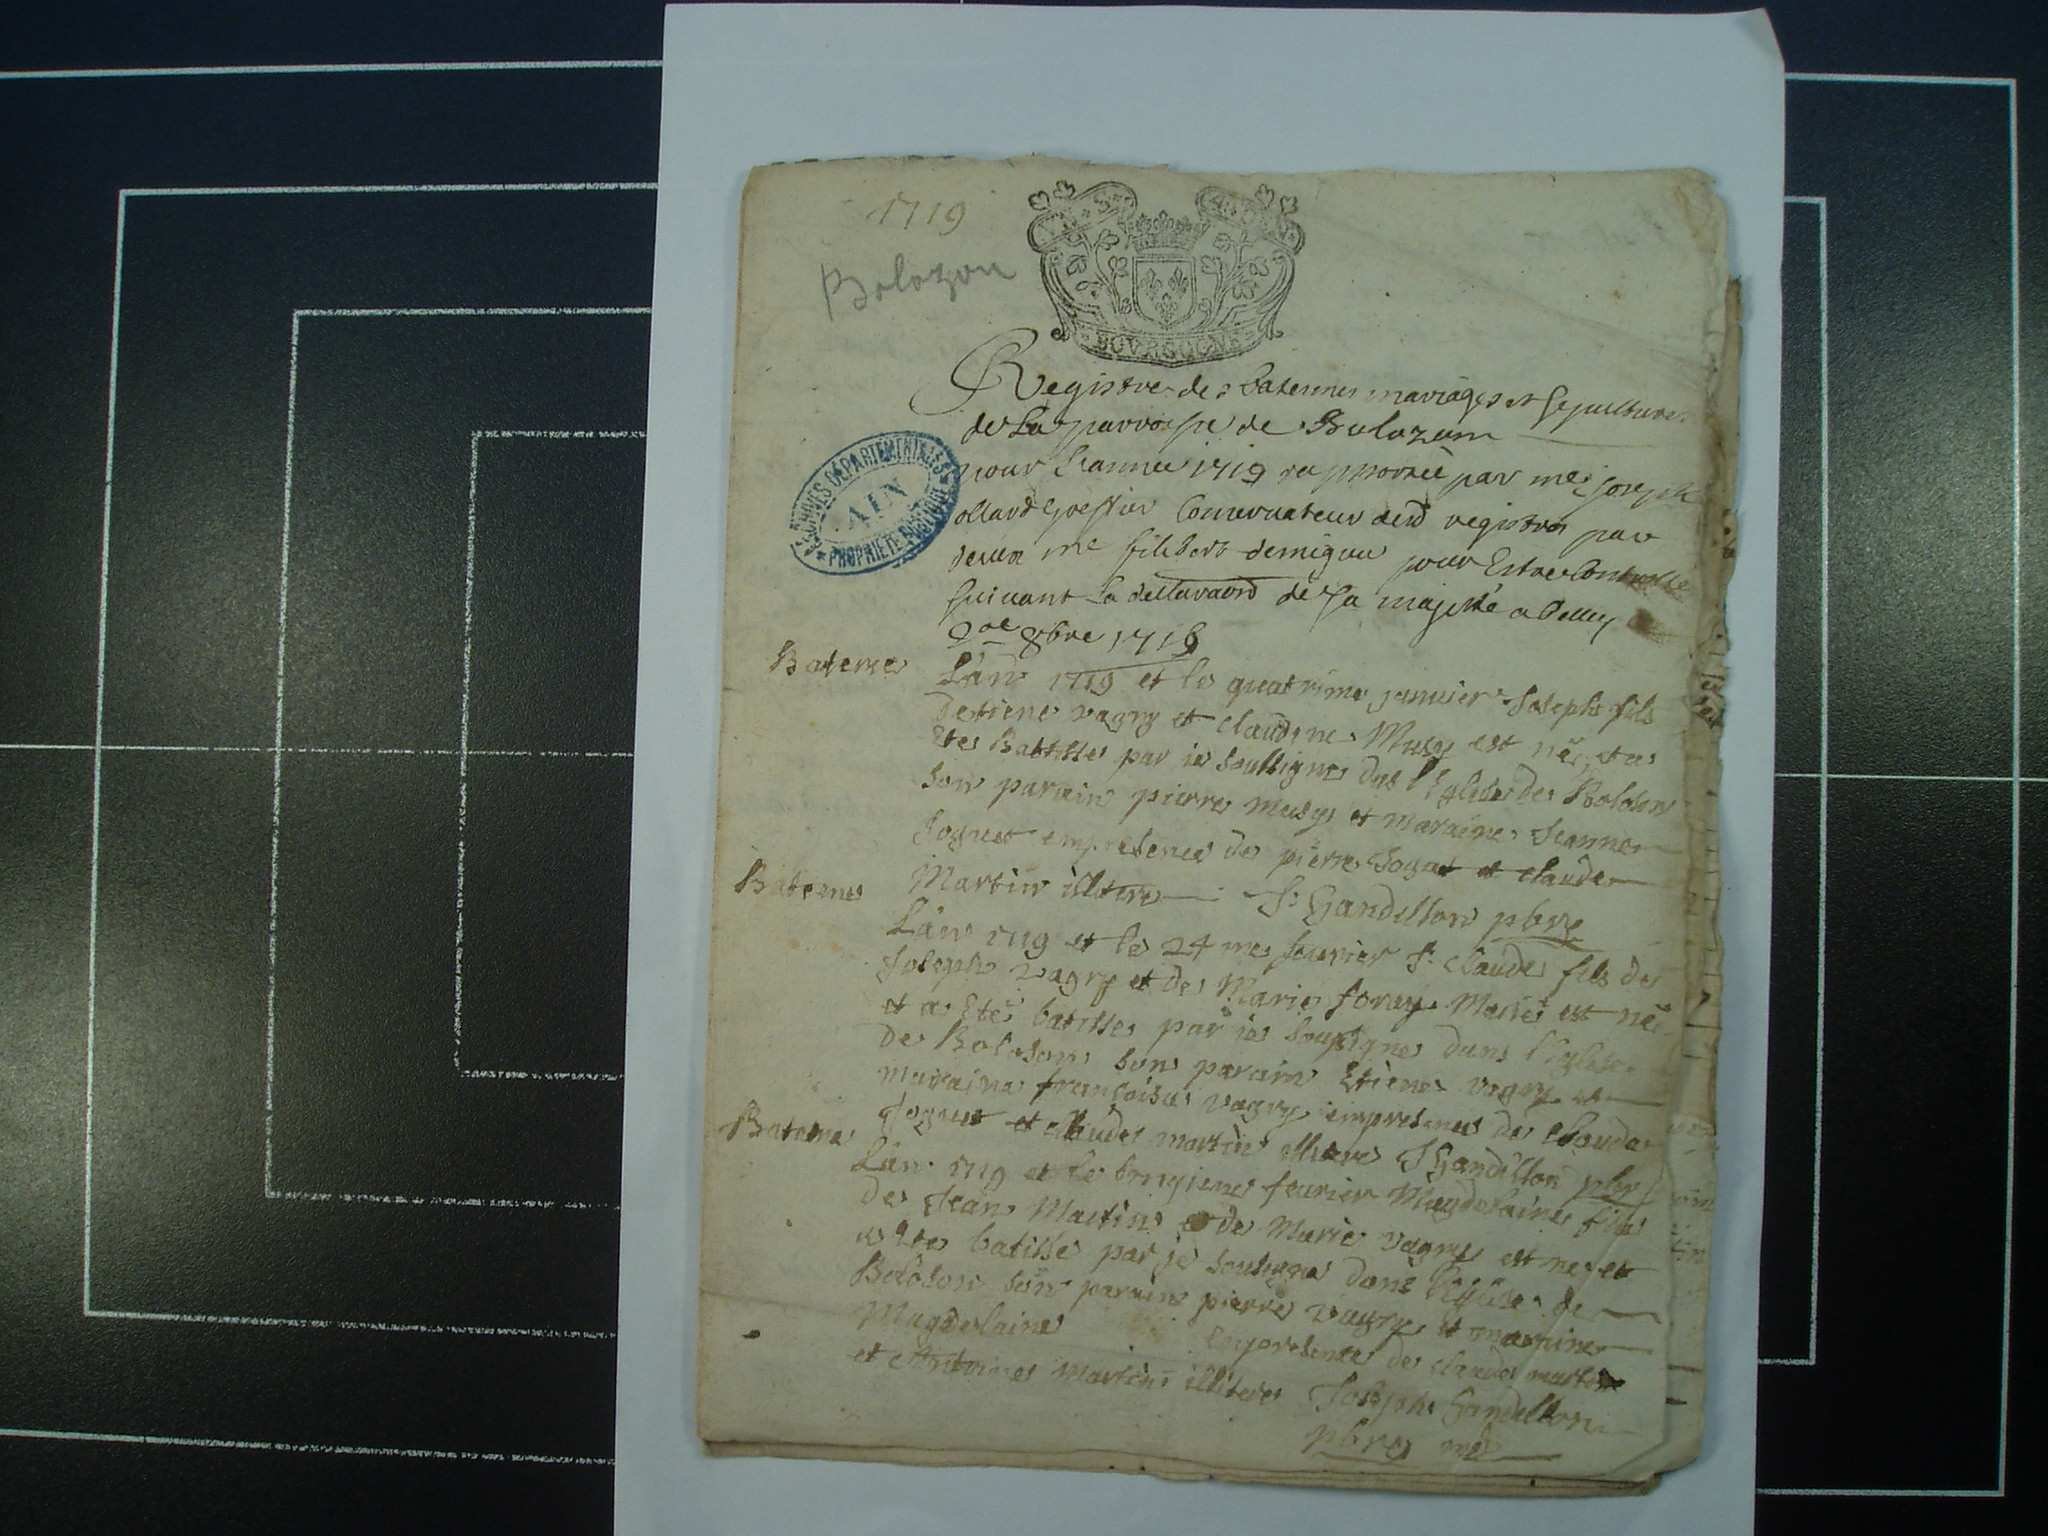 1719
Bolozon
BOVRGOGNE
ARCHIVES DÉPARTEMENTALES
AIN
PROPRIÉTÉ PUBLIQUE
Registre des Batemes mariages et sepultures
de La parroisse de Bolozom
pour Lannee 1719 par me joseph
ollard greffier Conservateur desd registres par
me filibert demigieu pour Estre Controlle
suivant La de Sa majesté a Belley
8bre 1718
Bateme
L'an 1719 et le quatrime janvier Joseph fils
Detiene vagry et claudine Musy est né, et a
Ete Batisse par je soussigne dns l'Eglise de Boloson
son parain pierre musy et maraine Jeanne
Joguet empresence de pierre Joguet et claude
Martin illitere J: Gandillon pbre
Bateme
L'an 1719 et le 24 me fevrier J: claude fils de
Joseph vagry et de Marie foray Mariés est né
et a Eté batisse par je soussigne dans l'eglise
de Boloson son parain Etiene vagry et
maraine françoise vagry empresence de claude
Joguet et claude martin illitere J Gandillon pbre
Bateme
L'an 1719 et le fevrier Magdelaine fille
de Jean Martin et de Marie vagry est ne et
a Ete batisse par je soussigne dans l'eglise de
Boloson son parain pierre vagry et maraine
Magdelaine empresence de claude martin
et Antoine Martin illitere Joseph Gandillon
pbre